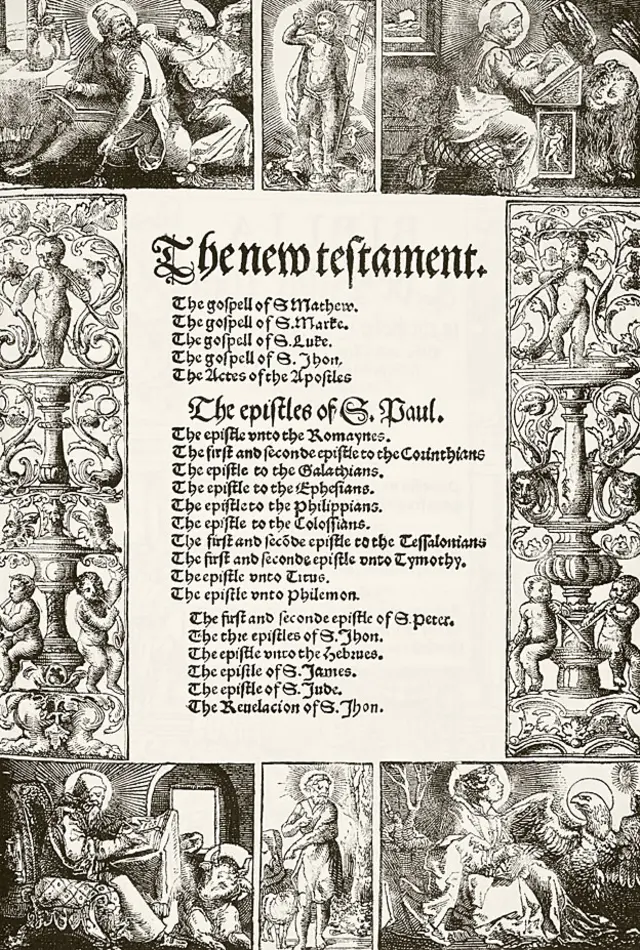 The new testament.
The gospell of S Mathew.
The gospell of S. Marke.
The gospell of S. Luke.
The gospell of S. Jhon.
The Actes of the Apostles
The epistles of S. Paul.
The epistle vnto the Romaynes.
The first and seconde epistle to the Corinthians
The epistle to the Galathians.
The epistle to the Ephesians.
The epistle to the Philippians.
The epistle to the Colossians.
The first and secōde epistle to the Tessalonians
The first and seconde epistle vnto Tymothy.
The epistle vnto Titus.
The epistle vnto Philemon.
The first and seconde epistle of S. Peter.
The thre epistles of S. Jhon.
The epistle vnto the Hebrues.
The epistle of S. James.
The epistle of S. Jude.
The Reuelacion of S. Jhon.